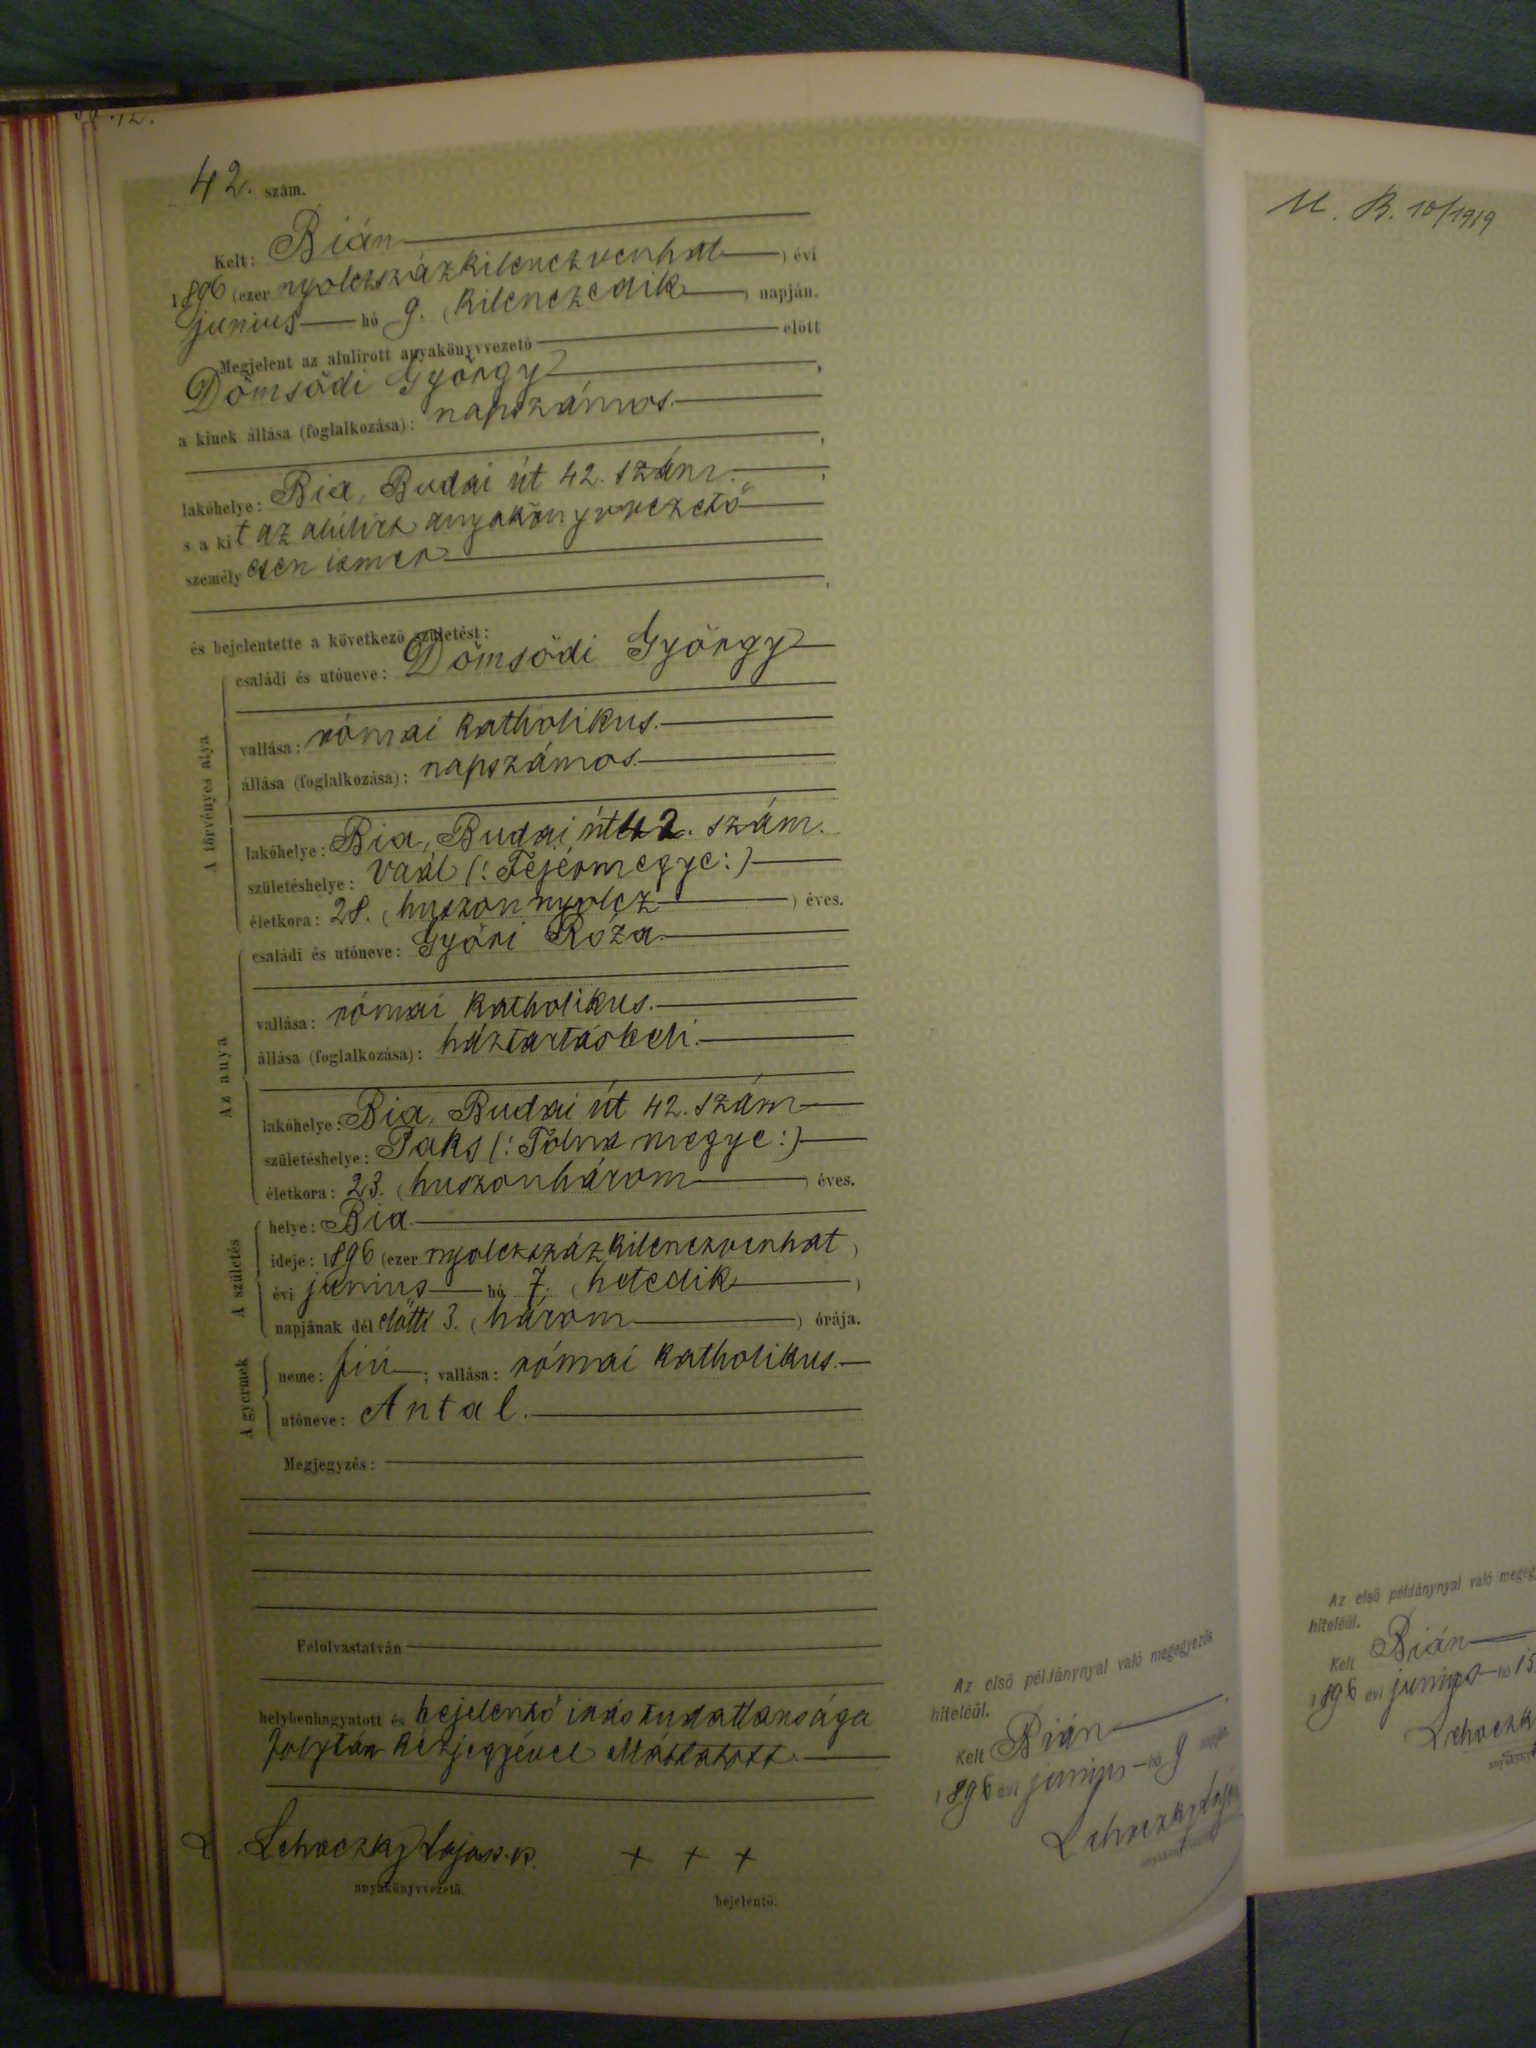 42. szám.
Kelt: Bián
1896 (ezer nyolczszázkilenczvenhat) évi
junius hó 9. (kilenczedik) napján.
Megjelent az alulirott anyakönyvvezető előtt
Dömsödi György,
a kinek állása (foglalkozása): napszámos.
lakóhelye: Bia, Budai út 42. szám.
s a kit az alúlirt anyakönyvvezető
személyesen ismer
és bejelentette a következő születést:
A törvényes atya
családi és utóneve: Dömsödi György
vallása: római katholikus.
állása (foglalkozása): napszámos.
lakóhelye: Bia, Budai út 42. szám.
születéshelye: Vaál (: Fejérmegye :)
életkora: 28. (huszonnyolcz) éves.
Az anya
családi és utóneve: Győri Róza.
vallása: római katholikus.
állása (foglalkozása): háztartásbeli.
lakóhelye: Bia, Budai út 42. szám
születéshelye: Paks (: Tolna megye :)
életkora: 23. (huszonhárom) éves.
A születés
helye: Bia.
ideje: 1896 (ezer nyolczszázkilenczvenhat)
évi junius hó 7. (hetedik)
napjának dél előtti 3. (három) órája.
A gyermek
neme: fiú; vallása: római katholikus.
utóneve: Antal.
Megjegyzés:
Felolvastatván
helybenhagyatott és bejelentő irástudatlansága
folytán kézjegyével elláttatott.
Lehoczky Lajos s. k. + + +
anyakönyvvezető. bejelentő.
Az első példánynyal való megegyezés
hiteléül.
Kelt Bián
1896 évi junius hó 9 napján.
Lehoczky Lajos
U. B. 10/1919
Az első példánynyal való
hiteléül.
Kelt Bián
1896 évi junius hó 15